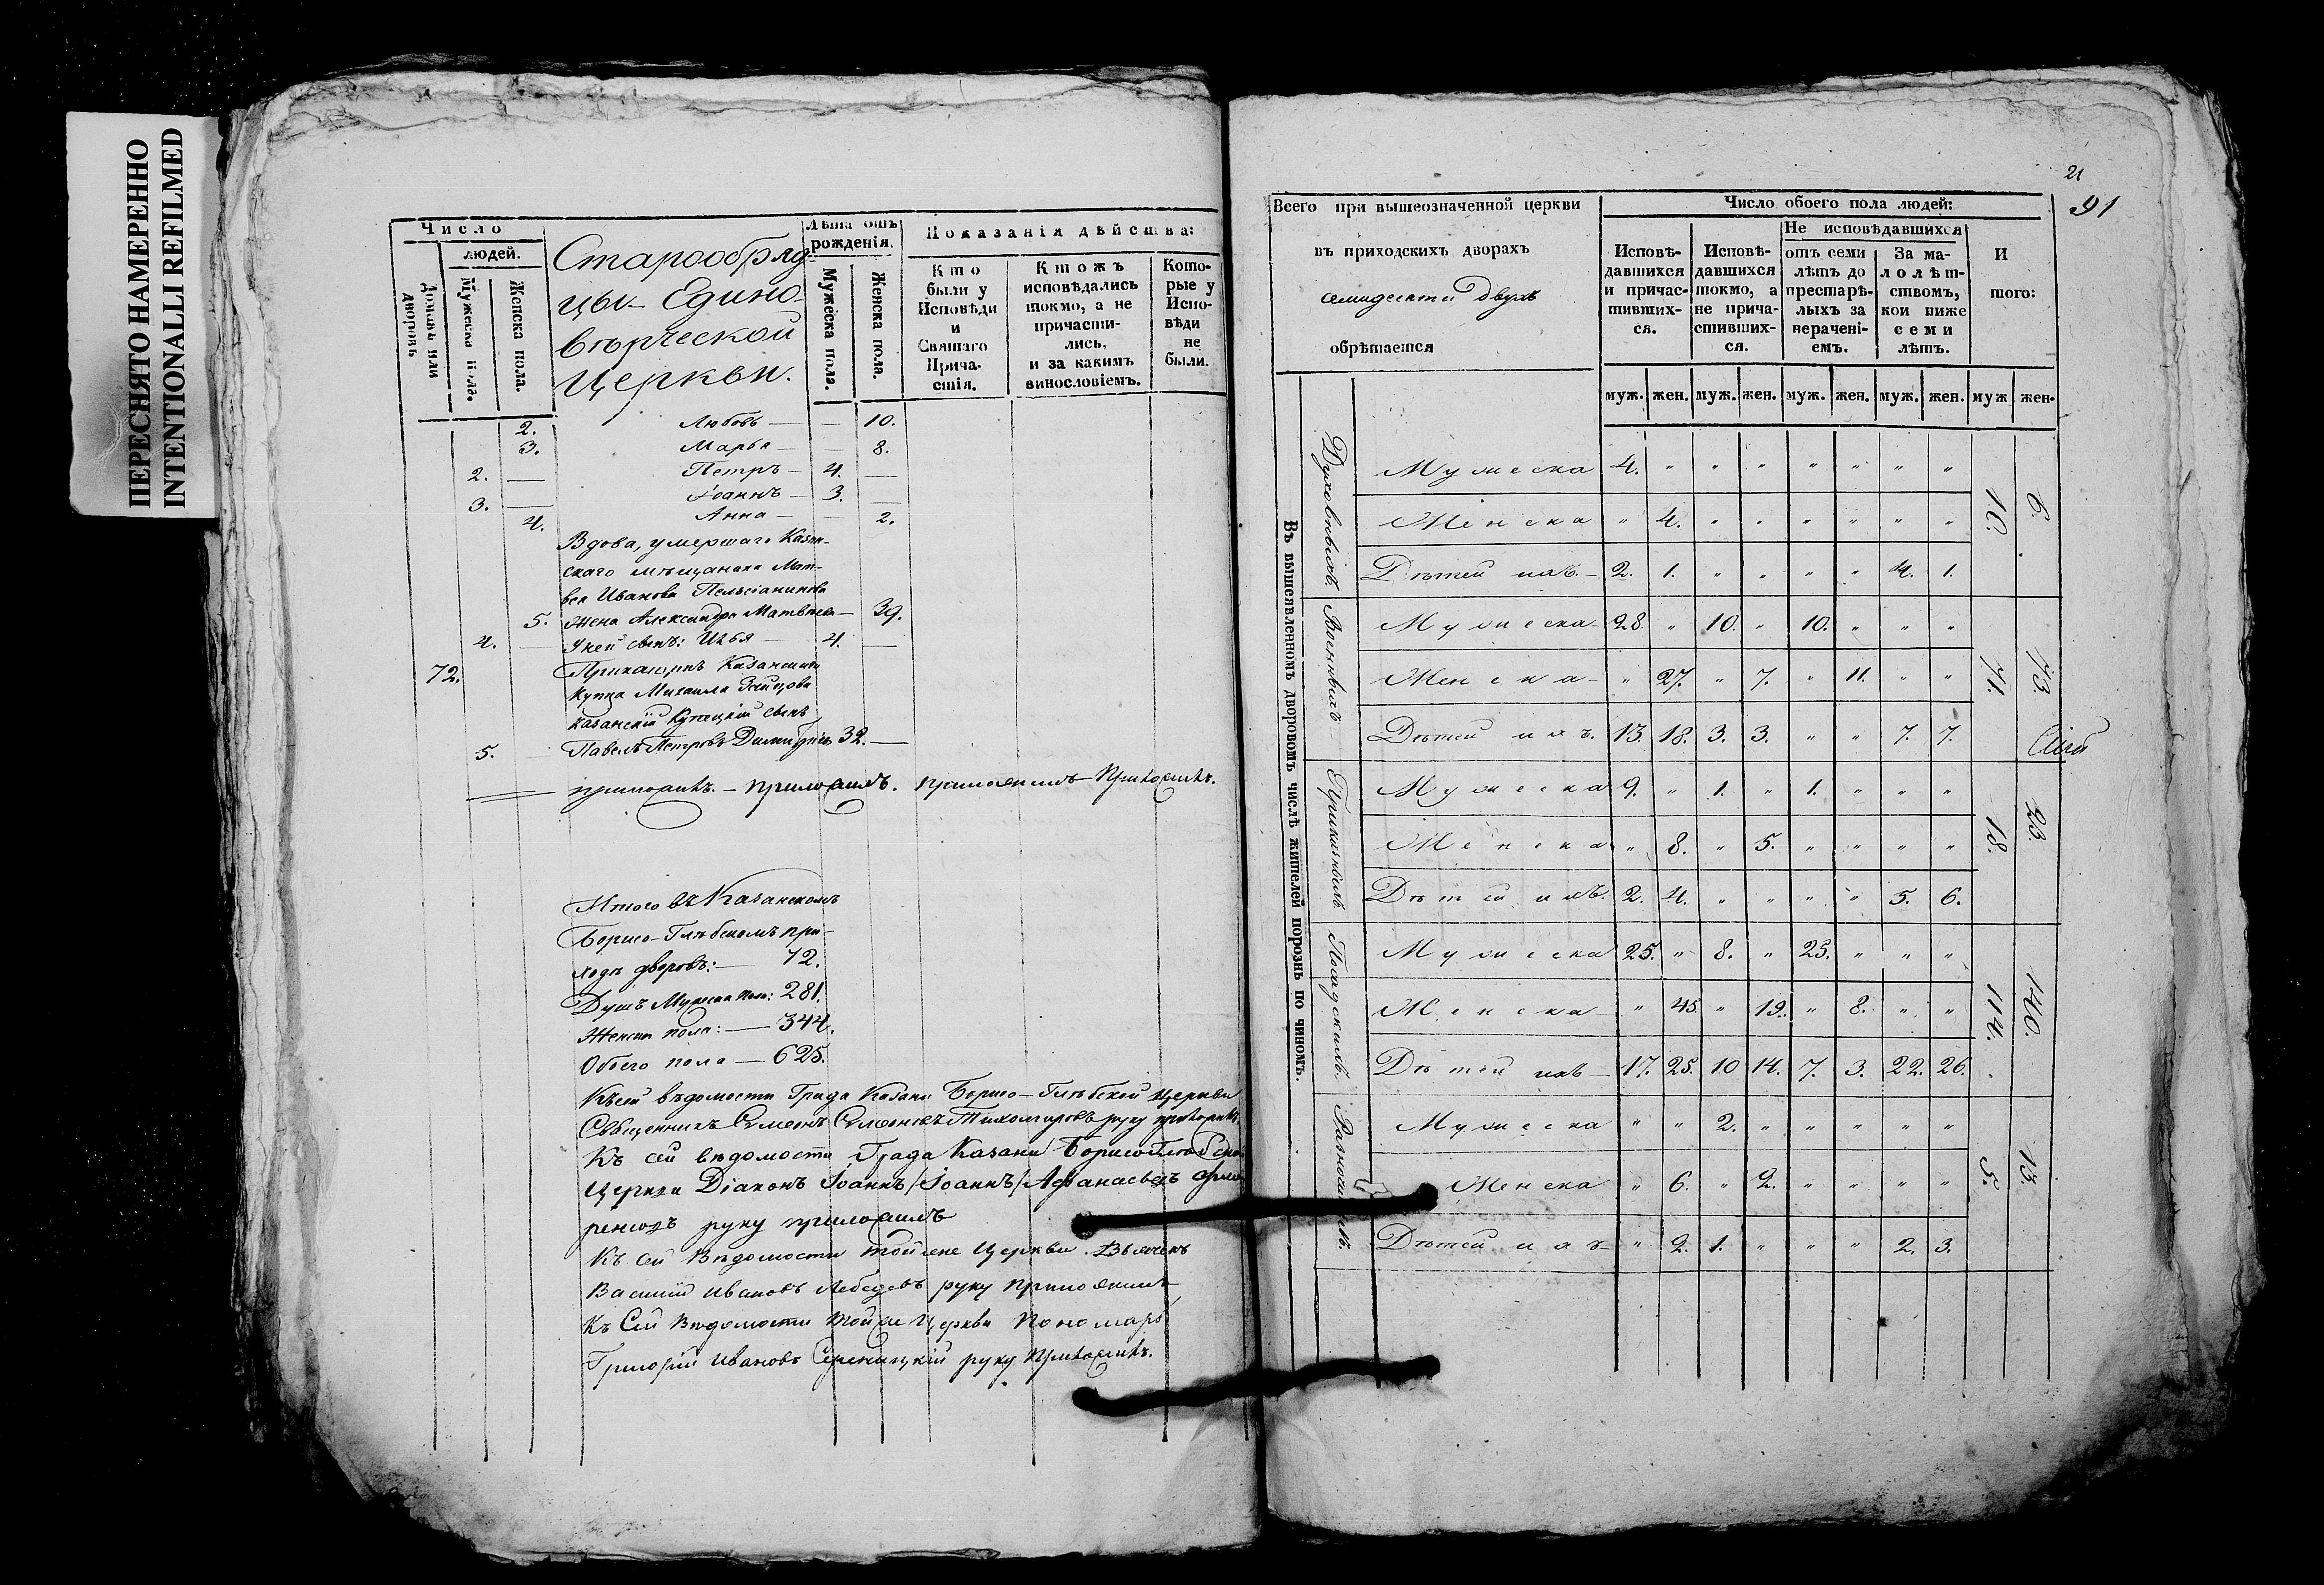 ПЕРЕСНЯТО НАМЕРЕННО
INTENTIONALLI REFILMED
Число
людей.
Домовъ или дворовъ
Мужеска пола.
Женска пола.
Старообряд-
цы Едино-
вѣрческой
Церкви.
Лѣта отъ рожденія.
Мужеска пола.
Женска пола.
Показанія дѣйства:
Кто были у Исповѣди и Святаго Прича-стія.
Ктожъ исповѣдались токмо, а не причасти-лись, и за какимъ винословіемъ.
Кото-рые у Испо-вѣди не были.
2. Любовь — — 10.
3. Марья — — 8.
2. — Петръ — 4. —
3. — Іоаннъ — 3. —
4. Анна — — 2.
Вдова, умершаго Казан-
скаго мѣщанина Мат-
вея Иванова
5. Жена Александра Матвѣева — 39.
4. — У ней сынъ: Илья — 4. —
72. Прикащикъ Казанскаго
купца Михаила Зайцова
Казанскій Купецкій сынъ
5. Павелъ Петровъ 32. —
приложилъ. — приложилъ. приложилъ Приложилъ.
Итого въ Казанскомъ
Борисо-Глѣбскомъ при-
ходѣ дворовъ: — 72.
Душъ Мужеска пола: 281.
Женска пола: — 344.
Обоего пола — 625.
Къ сей вѣдомости Града Казани Борисо-Глѣбской Церкви
Священникъ Симеонъ Симеоновъ Тихомировъ руку приложилъ.
Къ сей вѣдомости Града Казани Борисоглѣбской
Церкви Діаконъ Іоаннъ /Іоаннъ/ Афанасьевъ
руку приложилъ
Къ сей Вѣдомости той же Церкви Дьячекъ
Василій Ивановъ Лебедевъ руку приложилъ
Къ Сей Вѣдомости той же Церкви Пономарь
Григорій Ивановъ руку Приложилъ.
21
91
Всего при вышеозначенной церкви
въ приходскихъ дворахъ
семидесяти двухъ
обрѣтается
Число обоего пола людей:
Исповѣ-давшихся и причас-тивших-ся.
Исповѣ-давшихся токмо, а не прича-стивших-ся.
Не исповѣдавшихся
отъ семи лѣтъ до престарѣ-лыхъ за нерачені-емъ.
За ма-лолѣт-ствомъ, кои ниже семи лѣтъ.
И того:
муж. жен. муж. жен. муж. жен. муж. жен. муж жен.
Въ вышеявленномъ дворовомъ числѣ жителей порознь по чиномъ.
Духовныхъ.
Мужеска 4. " " " " " " "
Женска " 4. " " " " " "
Дѣтей ихъ. — 2. 1. " " " " 4. 1.
10. 6.
Военныхъ
Мужеска 28. " 10. " 10. " " "
Женска — " 27. " 7. " 11. " "
Дѣтей ихъ. 13. 18. 3. 3. " " 7. 7.
71. 73.
Приказныхъ.
Мужеска 9. " 1. " 1. " " "
Женска " 8. " 5. " " " "
Дѣтей ихъ. 2. 4. " " " " 5. 6.
18. 23.
Посадскихъ.
Мужеска 25. " 8. " 25. " " "
Женска — " 45 " 19. " 8. " "
Дѣтей ихъ — 17. 25. 10 14. 7. 3. 22. 26.
114. 140.
Мужеска " " 2. " " " " "
Женска " 6. " 2. " " " "
Дѣтей ихъ — " 2. 1. " " " 2. 3.
5. 13.